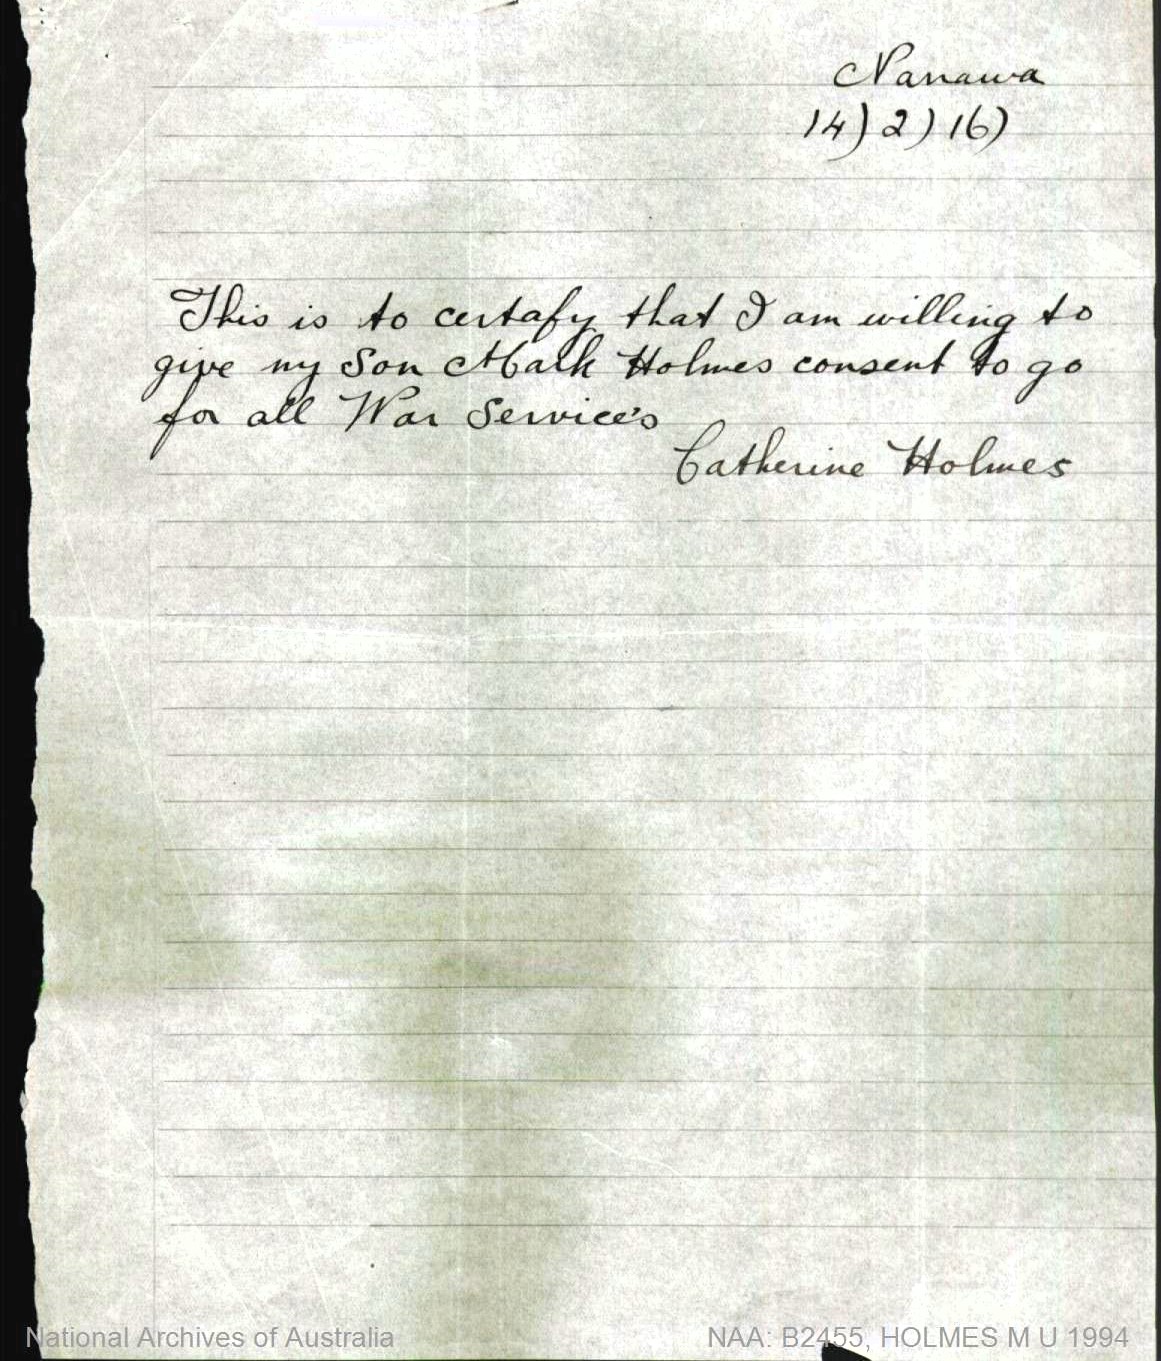 Narrawa
14) 2) 16)
This is to certafy that I am willing to
give my Son Mark Holmes consent to go
for all War Service's
Catherine Holmes
National Archives of Australia
NAA: B2455, HOLMES M U 1994